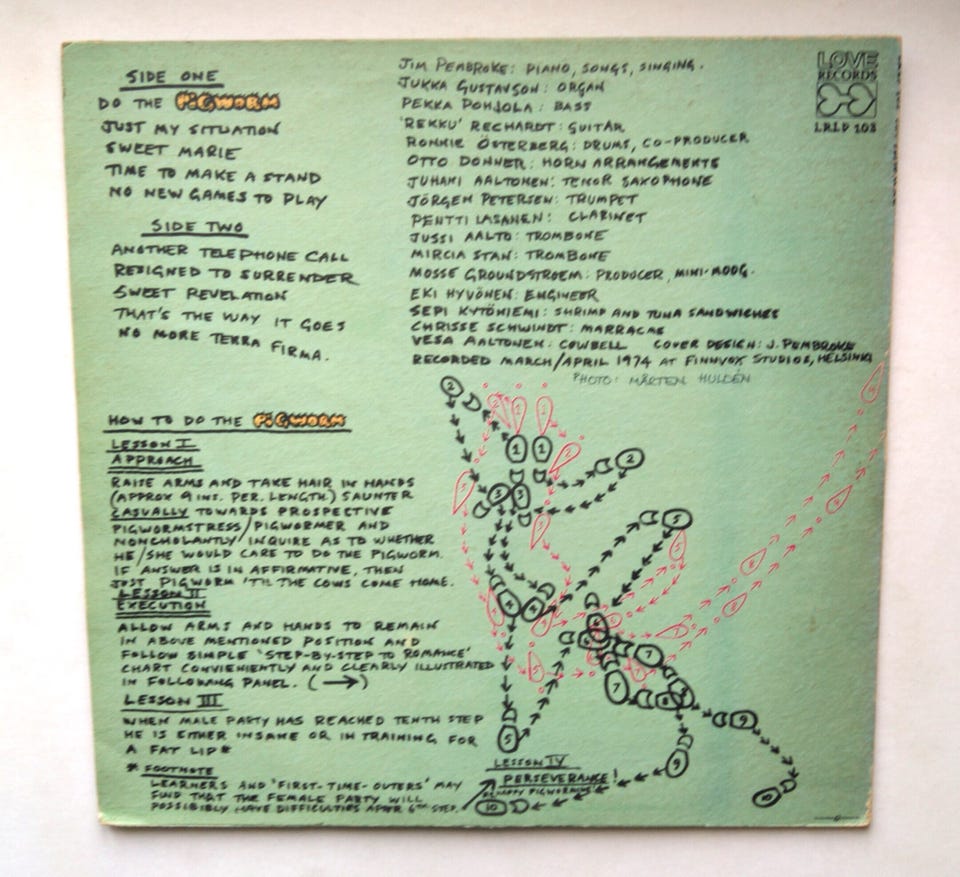 SIDE ONE
DO THE PIGWORM
JUST MY SITUATION
SWEET MARIE
TIME TO MAKE A STAND
NO NEW GAMES TO PLAY
SIDE TWO
ANOTHER TELEPHONE CALL
RESIGNED TO SURRENDER
SWEET REVELATION
THAT'S THE WAY IT GOES
NO MORE TERRA FIRMA.
JIM PEMBROKE: PIANO, SONGS, SINGING.
JUKKA GUSTAVSON: ORGAN
PEKKA POHJOLA: BASS
'REKKU' RECHARDT: GUITAR
RONNIE ÖSTERBERG: DRUMS, CO-PRODUCER
OTTO DONNER: HORN ARRANGEMENTS
JUHANI AALTONEN: TENOR SAXOPHONE
JÖRGEN PETERSEN: TRUMPET
PENTTI LASANEN: CLARINET
JUSSI AALTO: TROMBONE
MIRCIA STAN: TROMBONE
MOSSE GROUNDSTROEM: PRODUCER, MINI-MOOG.
EKI HYVÖNEN: ENGINEER
SEPI KYTÖNIEMI: SHRIMP AND TUNA SANDWICHES
CHRISSE SCHWINDT: MARRACAS
VESA AALTONEN: COWBELL COVER DESIGN: J. PEMBROKE
RECORDED MARCH/APRIL 1974 AT FINNVOX STUDIOS, HELSINKI
PHOTO: MÅRTEN HULDÉN
LOVE
RECORDS
LRLP 103
HOW TO DO THE PIGWORM
LESSON I
APPROACH
RAISE ARMS AND TAKE HAIR IN HANDS
(APPROX 9 INS. PER. LENGTH) SAUNTER
CASUALLY TOWARDS PROSPECTIVE
PIGWORMSTRESS/PIGWORMER AND
NONCHALANTLY INQUIRE AS TO WHETHER
HE/SHE WOULD CARE TO DO THE PIGWORM.
IF ANSWER IS IN AFFIRMATIVE, THEN
JUST PIGWORM 'TIL THE COWS COME HOME.
LESSON II
EXECUTION
ALLOW ARMS AND HANDS TO REMAIN
IN ABOVE MENTIONED POSITION AND
FOLLOW SIMPLE 'STEP-BY-STEP TO ROMANCE'
CHART CONVENIENTLY AND CLEARLY ILLUSTRATED
IN FOLLOWING PANEL. (→)
LESSON III
WHEN MALE PARTY HAS REACHED TENTH STEP
HE IS EITHER INSANE OR IN TRAINING FOR
A FAT LIP*
* FOOTNOTE
LEARNERS AND 'FIRST-TIME-OUTERS' MAY
FIND THAT THE FEMALE PARTY WILL
POSSIBILY HAVE DIFFICULTIES AFTER 6TH STEP.
LESSON IV
PERSEVERANCE!
HAPPY PIGWORMING
2
1
1
2
3
3
4
4
5
5
6
7
7
8
8
9
9
10
10